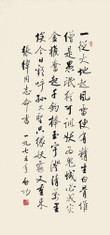 一從大地起風雷便有精生白骨堆
僧是愚氓猶可訓妖為鬼蜮必成災
金猴奮起千鈞棒玉宇澄清萬里
埃今日歡呼孫大聖只緣妖霧又重來
同志命書一九七五年啟功